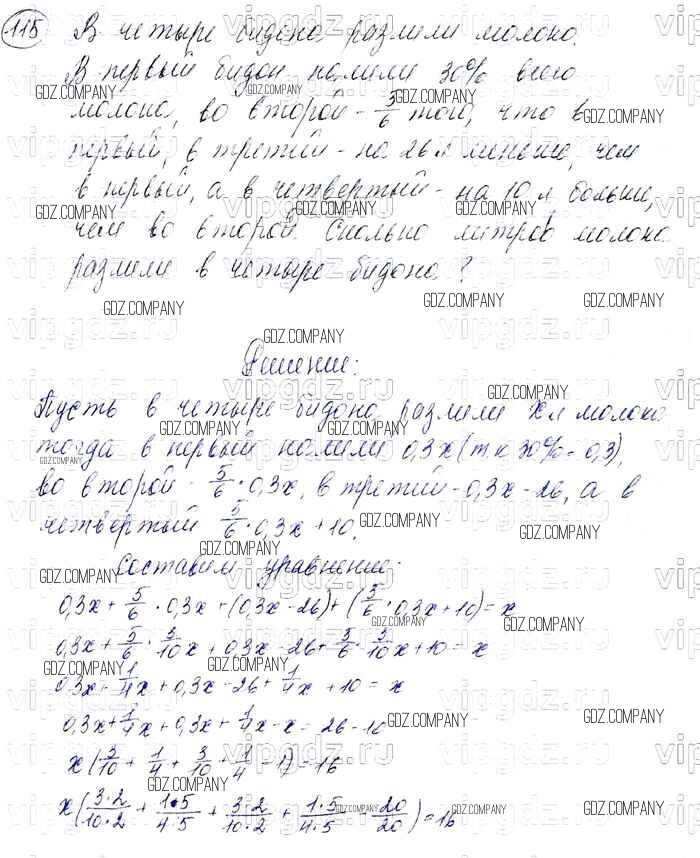 115 В четыре бидона разлили молоко.
В первый бидон налили 30% всего
молока, во второй - 5/6 того, что в
первый, в третий - на 26 л меньше, чем
в первый, а в четвертый - на 10 л больше,
чем во второй. Сколько литров молока
разлили в четыре бидона?
Решение:
Пусть в четыре бидона разлили х л молока
тогда в первый налили 0,3х (т.к 30% = 0,3),
во второй - 5/6 · 0,3х, в третий - 0,3х - 26, а в
четвертый 5/6 · 0,3х + 10.
Составим уравнение:
0,3х + 5/6 · 0,3х + (0,3х - 26) + (5/6 · 0,3х + 10) = х
0,3х + 5/6 · 3/10 х + 0,3х - 26 + 5/6 · 3/10 х + 10 = х
0,3х + 1/4 х + 0,3х - 26 + 1/4 х + 10 = х
0,3х + 1/4 х + 0,3х + 1/4 х - х = 26 - 10
х (3/10 + 1/4 + 3/10 + 1/4 - 1) = 16
х (3·2/10·2 + 1·5/4·5 + 3·2/10·2 + 1·5/4·5 - 20/20) = 16
GDZ.COMPANY
vipgdz.ru